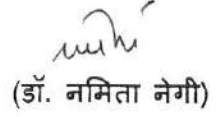 (डॉ. नमिता नेगी)